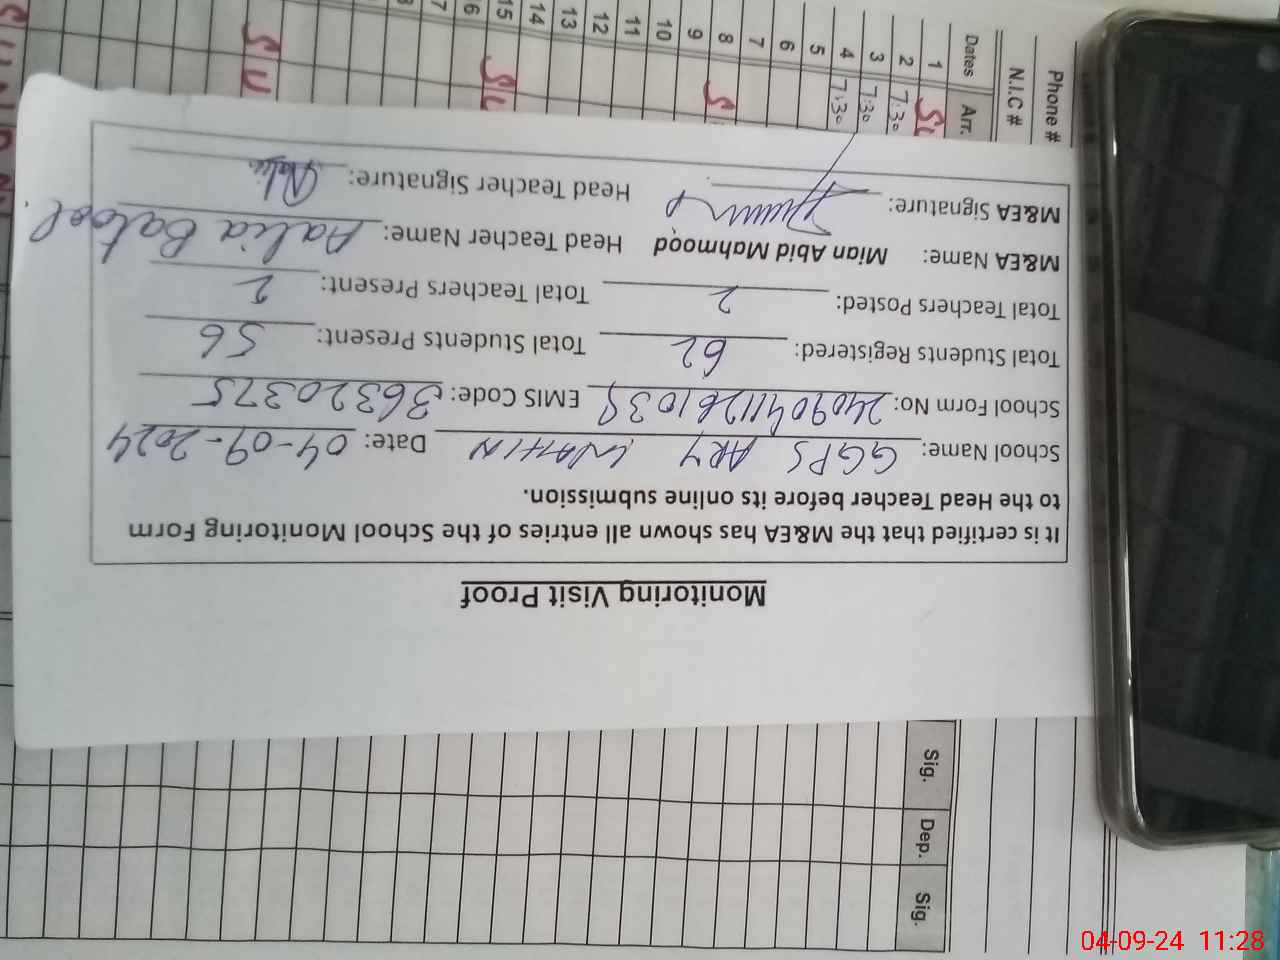 Monitoring Visit Proof
It is certified that the M&EA has shown all entries of the School Monitoring Form
to the Head Teacher before its online submission.
School Name: GGPS ARY WATTIN Date: 04-09-2024
School Form No: EMIS Code: 36320375
Total Students Registered: 62 Total Students Present: 56
Total Teachers Posted: 2 Total Teachers Present: 2
M&EA Name: Mian Abid Mahmood Head Teacher Name: Aalia Batool.
M&EA Signature: Head Teacher Signature: Aalia
Phone #
N.I.C #
Dates Arr. Sig. Dep. Sig.
1
2 7:30
3 7:30
4 7:30
5
6
7
8
9
10
11
12
13
14
15
04-09-24 11:28